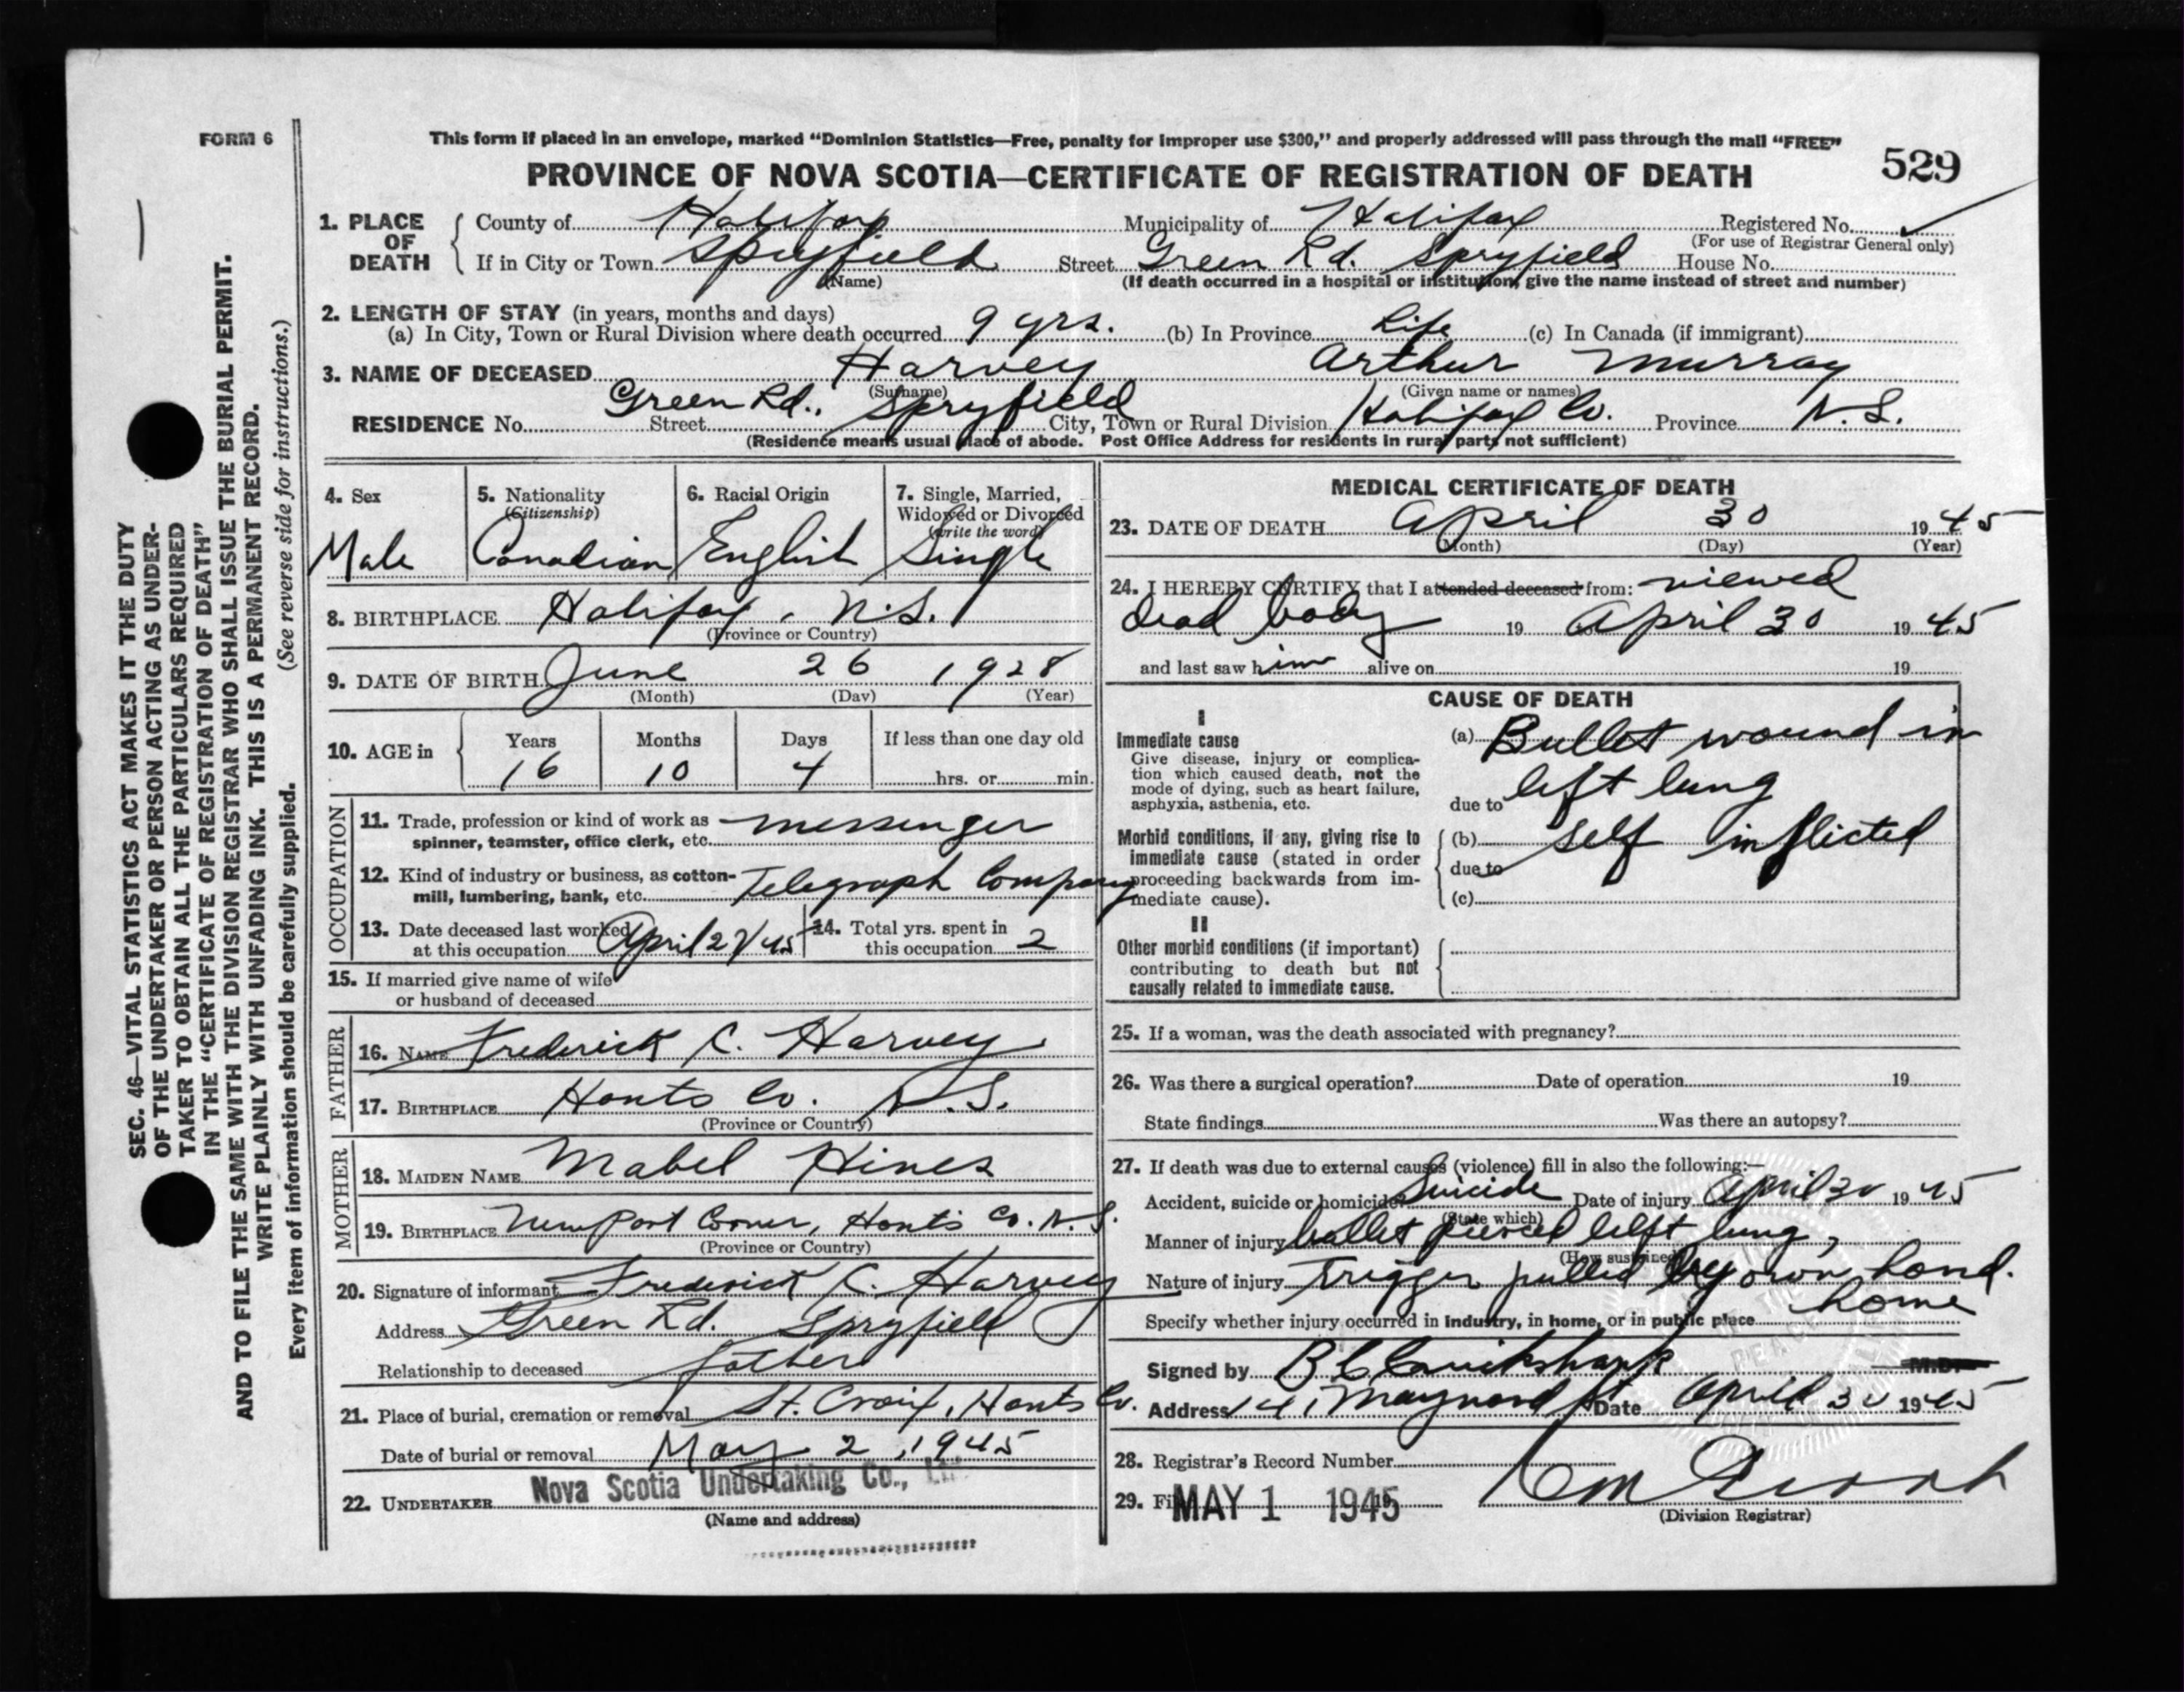 FORM 6
This form if placed in an envelope, marked “Dominion Statistics—Free, penalty for improper use $300,” and properly addressed will pass through the mail “FREE”
PROVINCE OF NOVA SCOTIA—CERTIFICATE OF REGISTRATION OF DEATH 529
SEC. 46—VITAL STATISTICS ACT MAKES IT THE DUTY
OF THE UNDERTAKER OR PERSON ACTING AS UNDER-
TAKER TO OBTAIN ALL THE PARTICULARS REQUIRED
IN THE “CERTIFICATE OF REGISTRATION OF DEATH”
AND TO FILE THE SAME WITH THE DIVISION REGISTRAR WHO SHALL ISSUE THE BURIAL PERMIT.
WRITE PLAINLY WITH UNFADING INK. THIS IS A PERMANENT RECORD.
(See reverse side for instructions.)
Every item of information should be carefully supplied.
1. PLACE OF DEATH
County of Halifax Municipality of Halifax Registered No.
(For use of Registrar General only)
If in City or Town Spryfield Street Green Rd. Spryfield House No.
(Name) (If death occurred in a hospital or institution, give the name instead of street and number)
2. LENGTH OF STAY (in years, months and days)
(a) In City, Town or Rural Division where death occurred 9 yrs. (b) In Province Life (c) In Canada (if immigrant)
3. NAME OF DECEASED Harvey Arthur Murray
(Surname) (Given name or names)
RESIDENCE No. Street Green Rd., Spryfield City, Town or Rural Division Halifax Co. Province N.S.
(Residence means usual place of abode. Post Office Address for residents in rural parts not sufficient)
4. Sex Male
5. Nationality (Citizenship) Canadian
6. Racial Origin English
7. Single, Married, Widowed or Divorced (write the word) Single
8. BIRTHPLACE Halifax, N.S.
(Province or Country)
9. DATE OF BIRTH June 26 1928
(Month) (Day) (Year)
10. AGE in Years Months Days If less than one day old
16 10 4 hrs. or min.
OCCUPATION
11. Trade, profession or kind of work as messenger
spinner, teamster, office clerk, etc.
12. Kind of industry or business, as cotton- Telegraph Company
mill, lumbering, bank, etc.
13. Date deceased last worked at this occupation April 27/45
14. Total yrs. spent in this occupation 2
15. If married give name of wife
or husband of deceased
FATHER
16. NAME Frederick C. Harvey
17. BIRTHPLACE Hants Co. N.S.
(Province or Country)
MOTHER
18. MAIDEN NAME Mabel Hines
19. BIRTHPLACE Newport Corner, Hants Co. N.S.
(Province or Country)
20. Signature of informant Frederick C. Harvey
Address Green Rd. Spryfield
Relationship to deceased father
21. Place of burial, cremation or removal St. Croix, Hants Co.
Date of burial or removal May 2, 1945
22. UNDERTAKER Nova Scotia Undertaking Co.,
(Name and address)
MEDICAL CERTIFICATE OF DEATH
23. DATE OF DEATH April 30 1945
(Month) (Day) (Year)
24. I HEREBY CERTIFY that I attended deceased from: viewed
dead body 19 to April 30 1945
and last saw him alive on 19
CAUSE OF DEATH
I
Immediate cause
Give disease, injury or complica-
tion which caused death, not the
mode of dying, such as heart failure,
asphyxia, asthenia, etc.
(a) Bullet wound in
due to left lung
Morbid conditions, if any, giving rise to
immediate cause (stated in order
proceeding backwards from im-
mediate cause).
(b) self inflicted
due to
(c)
II
Other morbid conditions (if important)
contributing to death but not
causally related to immediate cause.
25. If a woman, was the death associated with pregnancy?
26. Was there a surgical operation? Date of operation 19
State findings Was there an autopsy?
27. If death was due to external causes (violence) fill in also the following:—
Accident, suicide or homicide? Suicide Date of injury April 30 1945
(State which)
Manner of injury bullet pierced lelft lung,
(How sustained)
Nature of injury Trigger pulled by own hand.
Specify whether injury occurred in industry, in home, or in public place home
Signed by B C Cruikshank M.D.
Address 141 Maynard St Date April 30 1945
28. Registrar's Record Number
29. Fi MAY 1 1945
(Division Registrar)